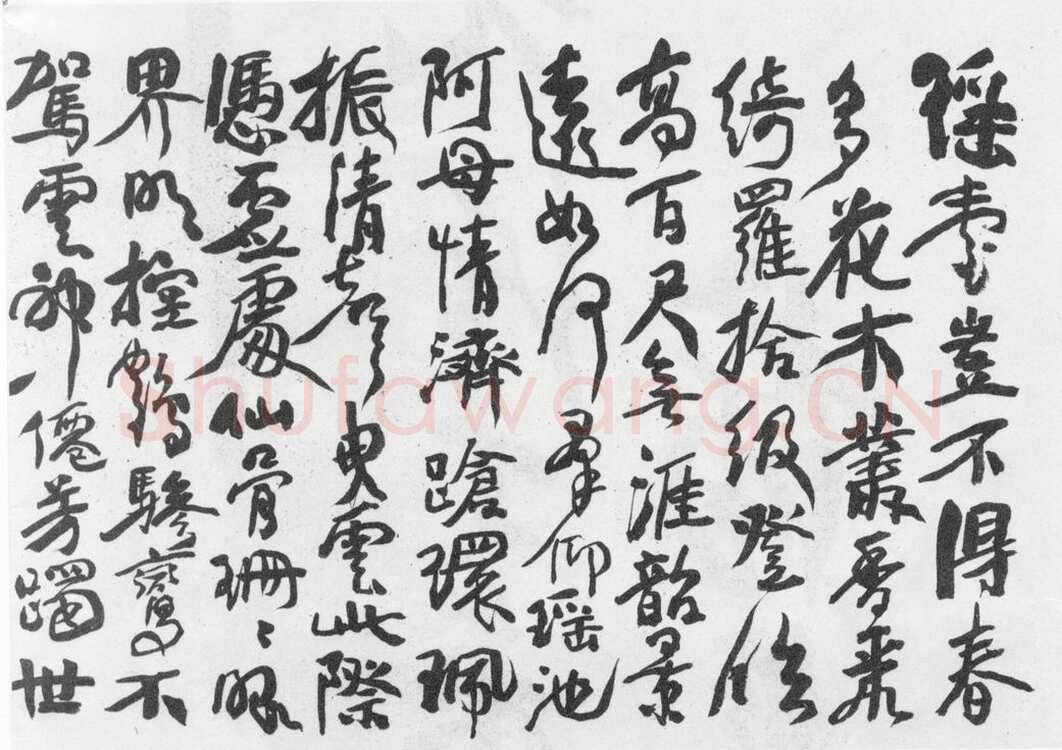 瑶臺豈不得春
多花木叢香乘
綺羅拾級登臨
高百尺無涯韶景
遠如何羣仰瑶池
阿母情濟蹌環珮
振清聲曳雲此際
憑虛處仙骨珊〻眼
界明控鶴驂鸞不
駕雲神僊芳躅世
Shufawang.CN